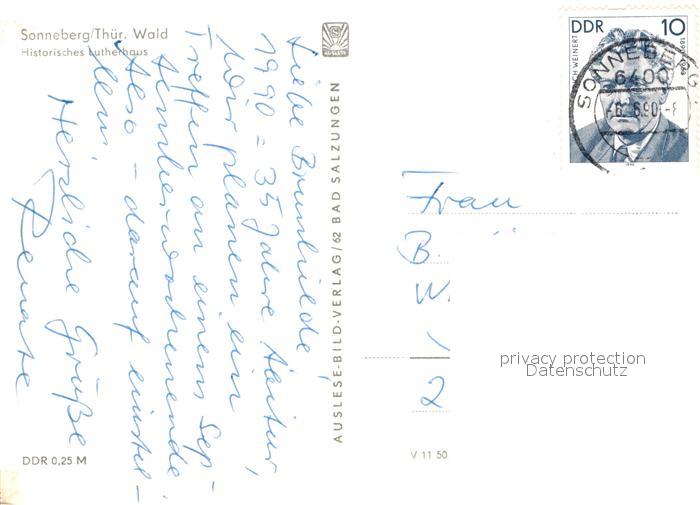 Sonneberg/Thür. Wald
Historisches Lutherhaus
Liebe Brunhilde,
1990 = 35 Jahre Abitur,
Wir planen ein
Treffen an einem Sep-
temberwochenende.
Also - darauf einstel-
len!
Herzliche Grüße
Renate
DDR 0,25 M
AUSLESE-BILD-VERLAG/62 BAD SALZUNGEN
V 11 50
DDR 10
ERICH WEINERT
SONNEBERG
6400
6.90-8
Frau
B.
W.
2
privacy protection
Datenschutz